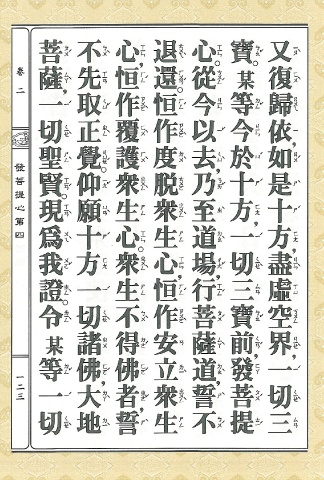 又復歸依,如是十方盡虛空界,一切三
寶。某等今於十方,一切三寶前,發菩提
心。從今以去,乃至道場,行菩薩道,誓不
退還。恒作度脫眾生心,恒作安立眾生
心,恒作覆護眾生心。眾生不得佛者,誓
不先取正覺。仰願十方一切諸佛,大地
菩薩,一切聖賢,現為我證。令某等一切
卷二
發菩提心第四
一二三